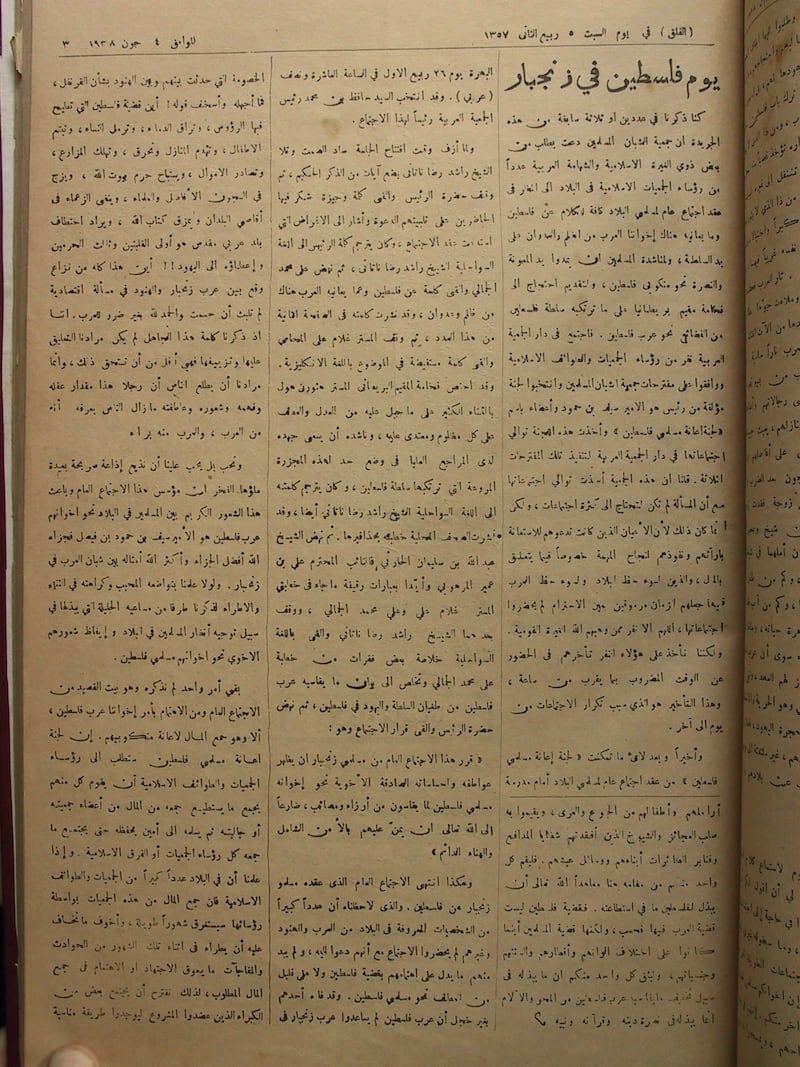 (الفلق) في يوم السبت ٥ ربيع الثاني ١٣٥٧
الموافق ٤ جون ١٩٣٨ ٣
يوم فلسطين في زنجبار
كنا ذكرنا في عددين أو ثلاثة سابقة من هذه
الجريدة أن جمعية الشبان المسلمين دعت بطلب من
بعض ذوي الغيرة الاسلامية والشهامة العربية عدداً
من رؤساء الجمعيات الاسلامية في البلاد الى النظر في
عقد اجتماع عام لمسلمي البلاد كافة للكلام عن فلسطين
وما يعانيه هناك إخواننا العرب من الظلم والعدوان على
يد السلطة، ولمناشدة المسلمين أن يمدوا يد المعونة
والنصرة نحو منكوبي فلسطين، ولتقديم احتجاج الى
فخامة مقيم بريطانيا على ما ترتكبه سلطة فلسطين
من الفظائع نحو عرب فلسطين. فاجتمع في دار الجمعية
العربية نفر من رؤساء الجمعيات والطوائف الاسلامية
ووافقوا على مقترحات جمعية الشبان المسلمين وانتخبوا لجنة
مؤلفة من رئيس هو الامير سيف بن حمود وأعضاء باسم
«لجنة اعانة مسلمي فلسطين» وأخذت هذه اللجنة توالي
اجتماعاتها في دار الجمعية العربية لتنفيذ تلك المقترحات
الثلاثة. قلنا ان هذه الجمعية أخذت توالي اجتماعاتها
مع أن المسألة لم تكن لتحتاج الى كثرة اجتماعات، ولكن
انما كان ذلك لأن الأعيان الذين كانت تدعوهم للاستعانة
بآرائهم ونفوذهم لنجاح المهمة خصوصاً فيما يتعلق
بالمال، والذين لسوء حظ البلاد ولسوء حظ العرب
فيها جعلهم الزمان مرموقين بعين الاحترام لم يحضروا
اجتماعاتها، اللهم الا نفر ممن وهبهم الله الغيرة القومية.
ولكننا نأخذ على هؤلاء النفر تأخرهم في الحضور
عن الوقت المضروب بما يقرب من ساعة،
وهذا التأخير هو الذي سبب تكرار الاجتماعات من
يوم الى آخر.
وأخيراً وبعد لأي ما تمكنت «لجنة إعانة مسلمي
فلسطين» من عقد اجتماع عام لمسلمي البلاد أمام مدرسة
أراملهم وأطفالهم من الجوع والعرى، ويقيموا به
صلب العجائز والشيوخ الذين أفقدتهم شظايا المدافع
وقنابر الطائرات أبناءهم ووسائل عيشهم. فليقم كل
واحد منكم من مقامه هنا معاهداً الله تعالى أن
يبذل لفلسطين ما في استطاعته. فقضية فلسطين ليست
قضية العرب فيها فحسب، ولكنها قضية المسلمين أينما
كانوا على اختلاف الوانهم وأقطارهم والسنتهم
وجنسياتهم، وليثق كل واحد منكم ان ما يبذله في
سبيل تخفيف بلايا عرب فلسطين من المحن والآلام
انما يبذله في نصرة دينه وقرآنه ونبيه
البهرة يوم ٢٦ ربيع الاول في الساعة العاشرة ونصف
(عربي). وقد انتخب السيد حافظ بن محمد رئيس
الجمعية العربية رئيساً لهذا الاجتماع.
ولما أزف وقت افتتاح الجلسة ساد الصمت وتلا
الشيخ راشد رضا ناناني بضع آيات من الذكر الحكيم، ثم
وقف حضرة الرئيس والقى كلمة وجيزة شكر فيها
الحاضرين على تلبيتهم الدعوة وأشار الى الاغراض التي
استدعت عقد الاجتماع، وكان يترجم كلمة الرئيس الى اللغة
السواحلية الشيخ راشد رضا ناناني، ثم نهض علي محمد
الجمالي والقى كلمة عن فلسطين وعما يعانيه العرب هناك
من ظلم وعدوان، وقد نشرت كلمته في الصفحة الثانية
من هذا العدد، ثم وقف المستر غلام علي المحامي
والقى كلمة مستفيضة في الموضوع باللغة الانكليزية.
وقد اختص فخامة المقيم البريطاني المستر هثورن هول
بالثناء الكثير على ما جبل عليه من العدل والعطف
على كل مظلوم ومعتدى عليه، وناشده أن يسعى جهده
لدى المراجع العليا في وضع حد لهذه المجزرة
المروعة التي ترتكبها سلطة فلسطين، وكان يترجم كلمته
الى اللغة السواحلية الشيخ راشد رضا ناناني أيضا، وقد
نشرت الصحف المحلية خطابه بحذافيرها. ثم نهض الشيخ
عبد الله بن سليمان الحارثي فالنائب المحترم علي بن
عمير المرهوبي وأيدا بعبارات رقيقة ما جاء في خطابي
المستر غلام علي وعلي محمد الجمالي، ووقف
بعدهما الشيخ راشد رضا ناناني والقى باللغة
السواحلية خلاصة بعض فقرات من خطبة
علي محمد الجمالي وتخلص الى بيان ما يقاسيه عرب
فلسطين من طغيان السلطة واليهود في فلسطين، ثم نهض
حضرة الرئيس والقى قرار الاجتماع وهو:
«قرر هذا الاجتماع العام من مسلمي زنجبار ان يظهر
عواطفه واحساساته الصادقة الأخوية نحو إخوانه
مسلمي فلسطين لما يقاسون من أرزاء ومصائب، ضارعاً
إلى الله تعالى ان يمن عليهم بالأمن الشامل
والهناء الدائم»
وهكذا انتهى الاجتماع العام الذي عقده مسلمو
زنجبار عن فلسطين. والذي لاحظناه أن عدداً كبيراً
من الشخصيات المعروفة في البلاد من العرب والهنود
وغيرهم لم يحضروا الاجتماع مع أنهم دعوا اليه، ولم يبد
منهم ما يدل على اهتمامهم بقضية فلسطين ولا على قليل
من العطف نحو مسلمي فلسطين. وقد فاه أحدهم
بغير خجل أن عرب فلسطين لم يساعدوا عرب زنجبار في
الخصومة التي حدثت بينهم وبين الهنود بشأن القرنفل،
فما أجهله وأسخف قوله! أين قضية فلسطين التي تطيح
فيها الرؤوس، وتراق الدماء، وترمل النساء، وتيتم
الاطفال، وتهدم المنازل وتحرق، وتهلك المزارع،
وتصادر الاموال، ويستباح حرم بيوت الله، ويزج
في السجون الأفاضل والعلماء، وينفى الزعماء في
أقاصي البلدان ويمزق كتاب الله، ويراد اختطاف
بلد عربي مقدس هو أولى القبلتين وثالث الحرمين
وإعطاؤه الى اليهود!! أين هذا كله من نزاع
وقع بين عرب زنجبار والهنود في مسألة اقتصادية
لم تلبث أن حسمت والحمد لله بغير ضرر للعرب. اننا
اذ ذكرنا كلمة هذا المتجاهل لم يكن مرادنا التعليق
عليها وتزييفها فهي أقل من أن تستحق ذلك، وانما
مرادنا أن يطلع الناس أن رجلا هذا مقدار عقله
وفهمه وشعوره وعاطفته ما زال الناس يعرفه انه
من العرب، والعرب منه براء
ونحب بل يجب علينا أن نذيع إذاعة صريحة بعيدة
ملؤها الفخر ان مؤسس هذا الاجتماع العام وباعث
هذا الشعور الكريم بين المسلمين في البلاد نحو اخوانهم
عرب فلسطين هو الأمير سيف بن حمود بن فيصل فجزاه
الله أفضل الجزاء وأكثر الله أمثاله بين شبان العرب في
زنجبار. ولولا علمنا بتواضعه المحبب وكراهته في الثناء
والاطراء لذكرنا طرفا من مساعيه الجليلة التي يبذلها في
سبيل توجيه أنظار المسلمين في البلاد وإيقاظ شعورهم
الاخوي نحو اخوانهم مسلمي فلسطين.
بقي أمر واحد لم نذكره وهو بيت القصيد من
الاجتماع العام ومن الاهتمام بأمر إخواننا عرب فلسطين،
ألا وهو جمع المال لاعانة منكوبيهم. إن لجنة
اعانة مسلمي فلسطين ستطلب الى رؤساء
الجمعيات والطوائف الاسلامية أن يقوم كل منهم
بجمع ما يستطيع جمعه من المال من أعضاء جمعيته
أو جاليته ثم يسلمه الى أمين يحفظه حتى يجتمع ما
جمعه كل رؤساء الجمعيات أو الفرق الاسلامية. وإذا
علمنا أن في البلاد عدداً كبيراً من الجمعيات والطوائف
الاسلامية فان جمع المال من هذه الجمعيات بواسطة
رؤسائها سيستغرق شهوراً طويلة، وأخوف ما نخاف
عليه أن يطراء في اثناء تلك الشهور من الحوادث
والمفاجآت ما يعوق الاجتهاد او الاهتمام في جمع
المال المطلوب، لذلك نقترح أن يجتمع بعض من
الكبراء الذين عضدوا المشروع ليوجدوا طريقة مناسبة